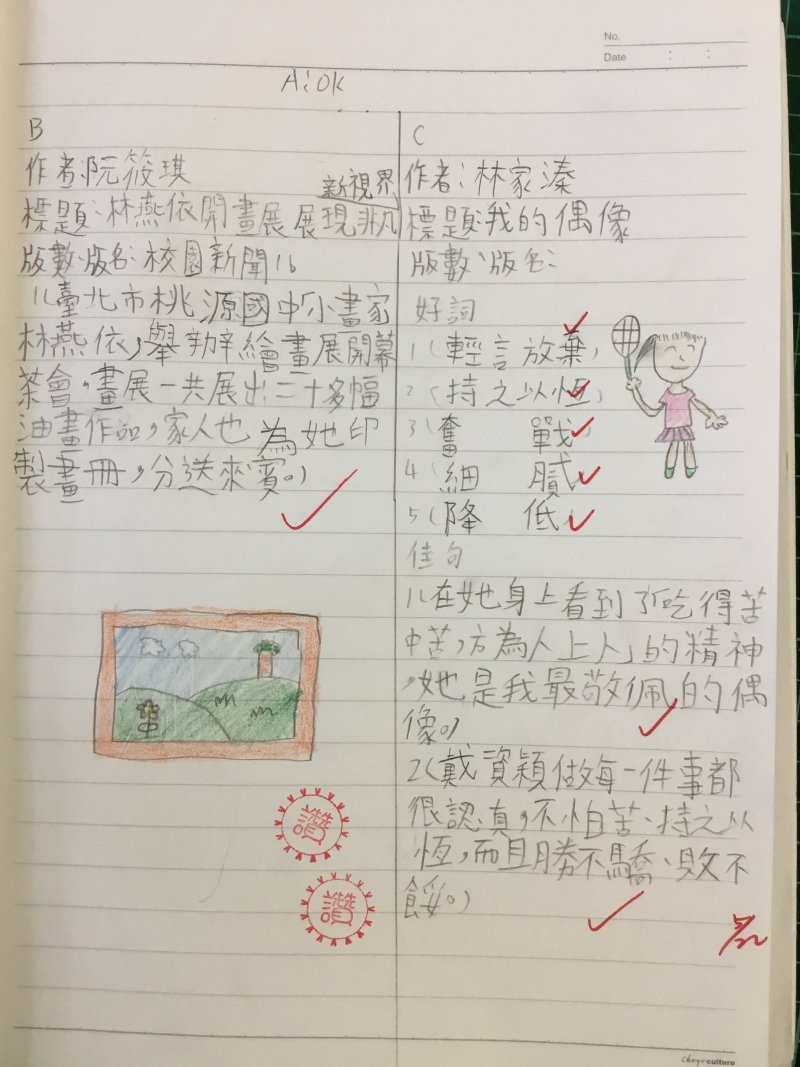 No.
Date : :
A:OK
B
作者:阮筱琪
新視界
標題:林燕依開畫展展現非凡
版數、版名:校園新聞16
1(臺北市桃源國中「小畫家
林燕依,舉辦繪畫展開幕
茶會。畫展一共展出二十多幅
油畫作品,家人也為她印
製畫冊,分送來賓。)
讚
讚
C
作者:林家溱
標題:我的偶像
版數、版名:
好詞
1(輕言放棄)
2(持之以恆)
3(奮 戰)
4(細 膩)
5(降 低)
佳句
1(在她身上看到了「吃得苦
中苦,方為人上人」的精神
,她是我最敬佩的偶
像。)
2(戴資穎做每一件事都
很認真,不怕苦、持之以
恆,而且勝不驕、敗不
餒。)
culture